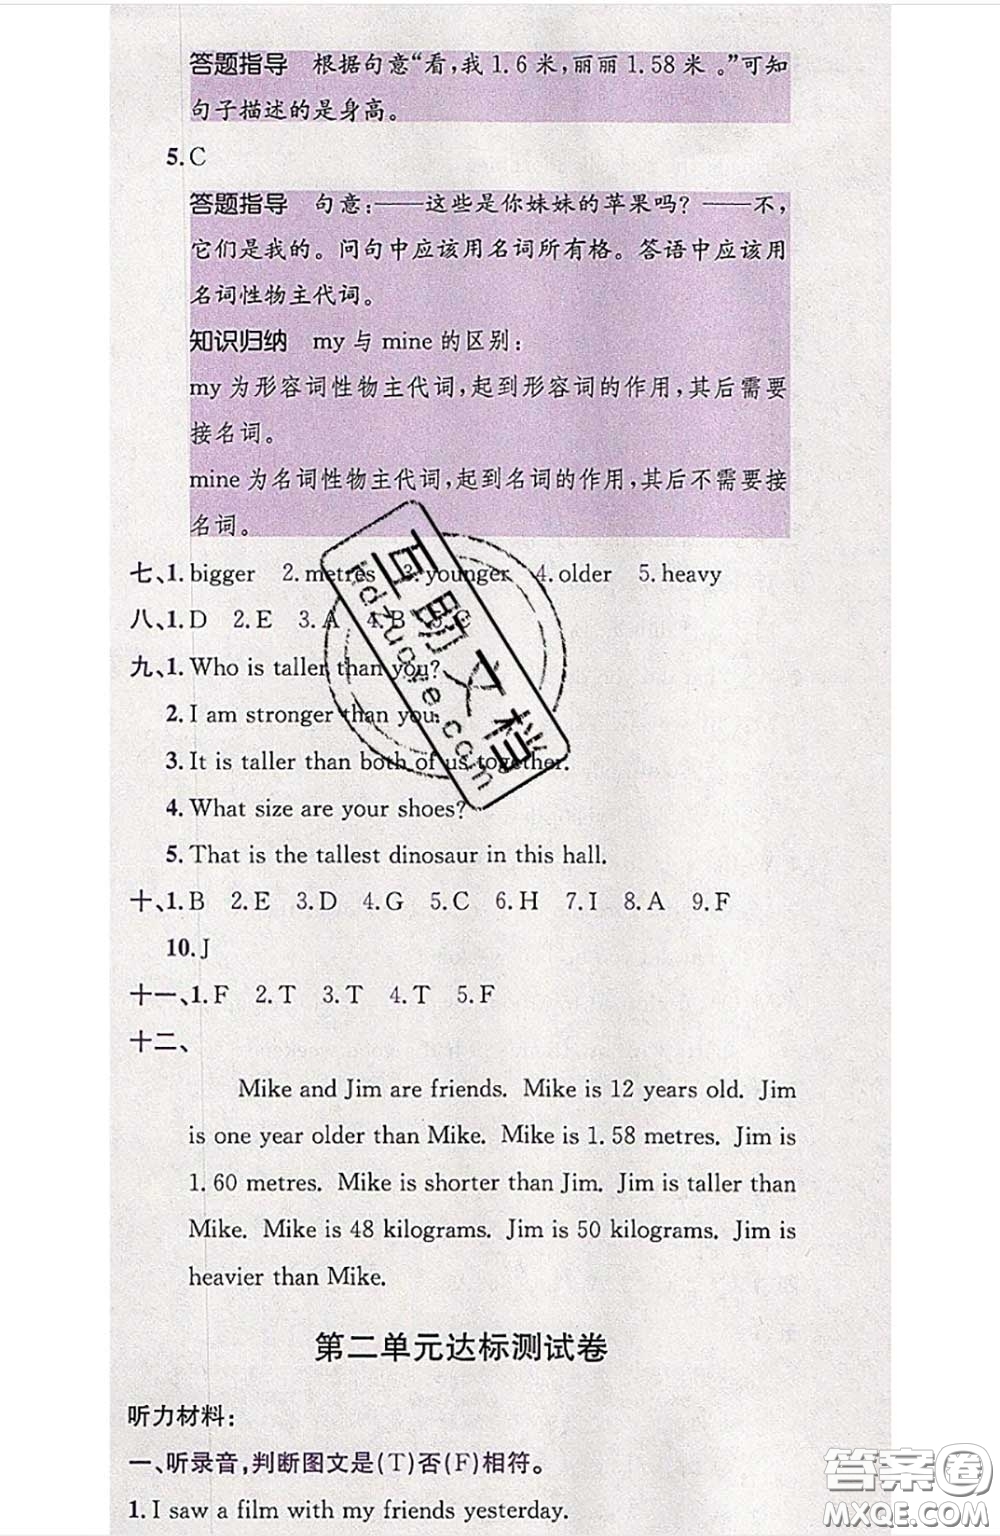 答题指导 根据句意“看,我1.6米,丽丽1.58米。”可知
句子描述的是身高。
5.C
答题指导 句意:——这些是你妹妹的苹果吗?——不,
它们是我的。问句中应该用名词所有格。答语中应该用
名词性物主代词。
知识归纳 my 与 mine 的区别:
my 为形容词性物主代词,起到形容词的作用,其后需要
接名词。
mine 为名词性物主代词,起到名词的作用,其后不需要接
名词。
七、1. bigger 2. metres 3. younger 4. older 5. heavy
八、1. D 2. E 3. A 4. B 5. C
九、1. Who is taller than you?
2. I am stronger than you.
3. It is taller than both of us together.
4. What size are your shoes?
5. That is the tallest dinosaur in this hall.
十、1. B 2. E 3. D 4. G 5. C 6. H 7. I 8. A 9. F
10. J
十一、1. F 2. T 3. T 4. T 5. F
十二、
Mike and Jim are friends. Mike is 12 years old. Jim
is one year older than Mike. Mike is 1. 58 metres. Jim is
1. 60 metres. Mike is shorter than Jim. Jim is taller than
Mike. Mike is 48 kilograms. Jim is 50 kilograms. Jim is
heavier than Mike.
第二单元达标测试卷
听力材料:
一、听录音,判断图文是(T)否(F)相符。
1. I saw a film with my friends yesterday.
互助文档
hdzuoye.com
答案卷
MXQE.COM